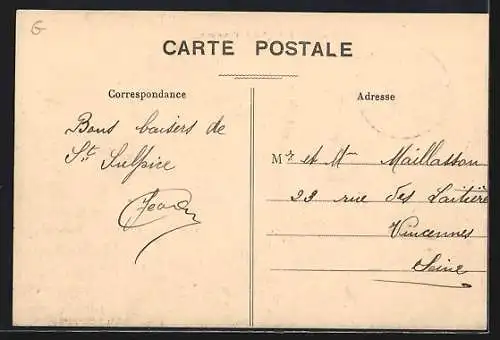 G
CARTE POSTALE
Correspondance
Adresse
Bons baisers de
St. Sulpice
Mr et Mme Maillasson
23 rue des Laitières
Vincennes
Seine